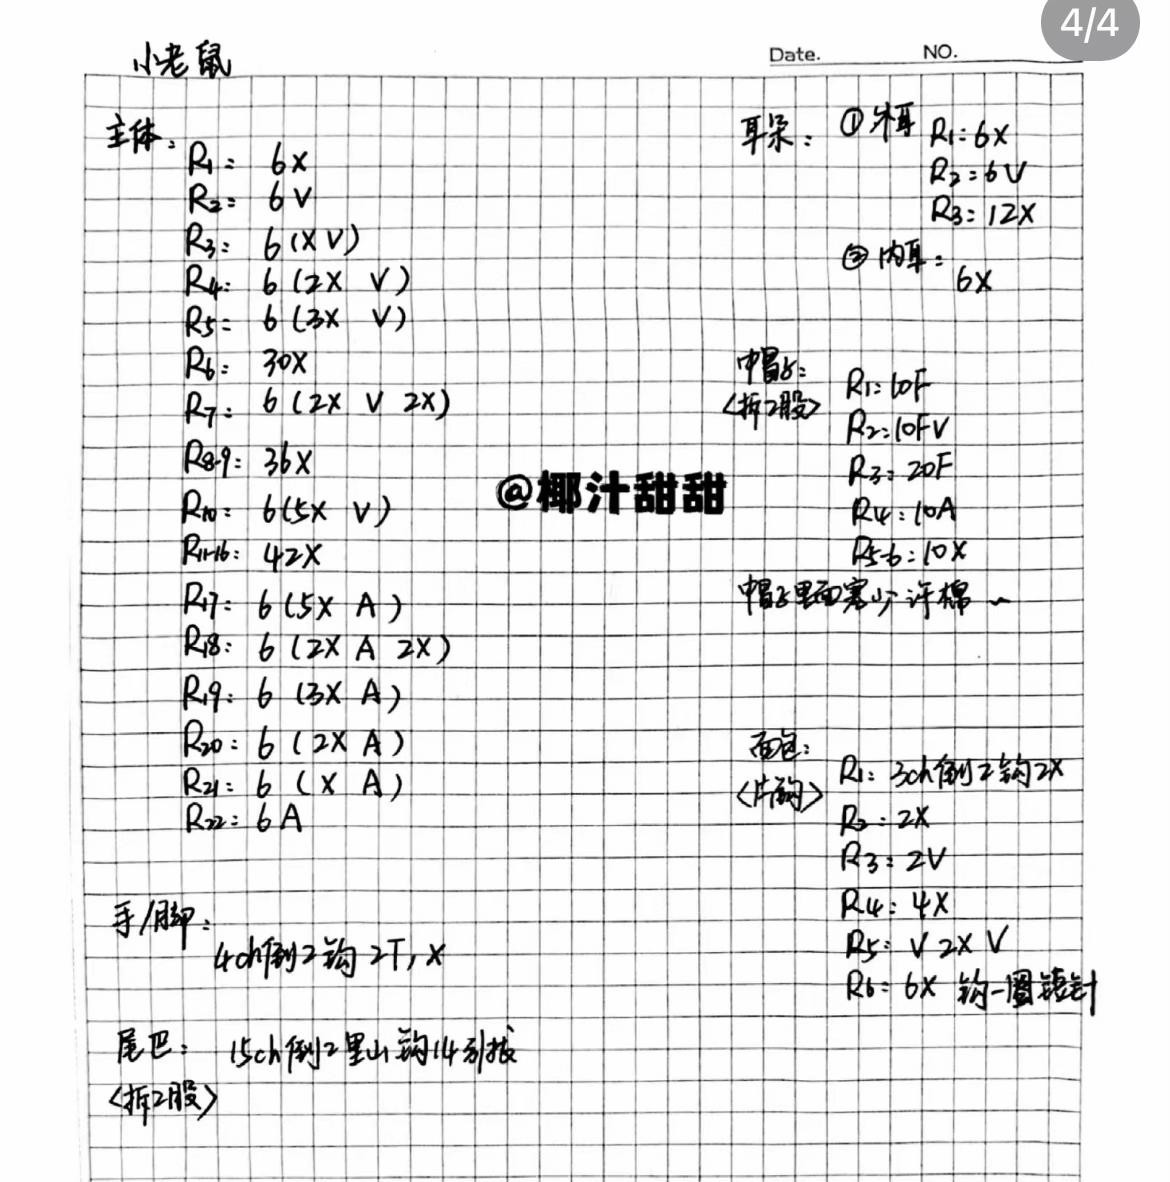 4/4
小老鼠
Date.
NO.
主体:
R1: 6X
R2: 6V
R3: 6(XV)
R4: 6(2X V)
R5: 6(3X V)
R6: 30X
R7: 6(2X V 2X)
R8-9: 36X
R10: 6(5X V)
R11-16: 42X
R17: 6(5X A)
R18: 6(2X A 2X)
R19: 6(3X A)
R20: 6(2X A)
R21: 6(X A)
R22: 6A
手/脚:
4ch倒2钩 2T, X
尾巴: 15ch倒2里山钩14引拔
<拆2股>
耳朵: ①外耳 R1: 6X
R2: 6V
R3: 12X
②内耳:
6X
帽子:
<拆2股>
R1: 10F
R2: 10FV
R3: 20F
R4: 10A
R5-6: 10X
帽子里面塞少许棉~
面包:
<片钩>
R1: 3ch倒2钩2X
R2: 2X
R3: 2V
R4: 4X
R5: V 2X V
R6: 6X 钩一圈短针
@椰汁甜甜